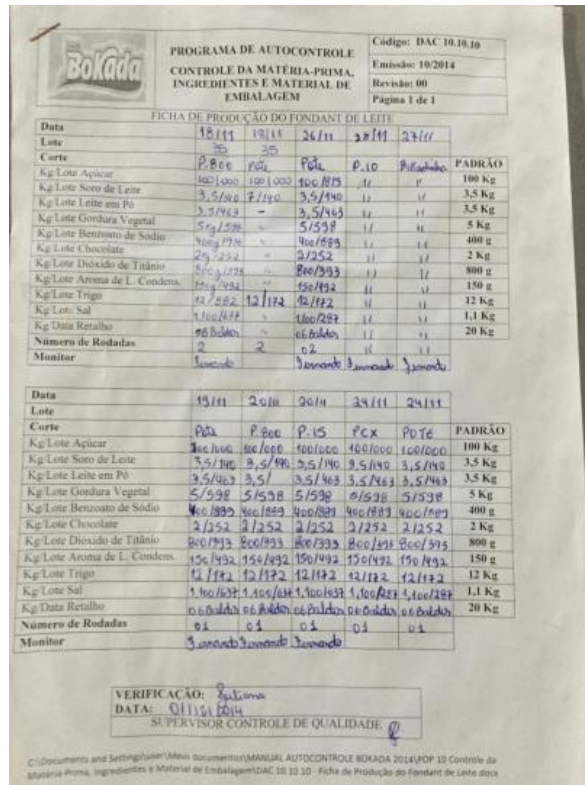 BoKada
PROGRAMA DE AUTOCONTROLE
CONTROLE DA MATÉRIA-PRIMA,
INGREDIENTES E MATERIAL DE
EMBALAGEM
Código: DAC 10.10.10
Emissão: 10/2014
Revisão: 00
Página 1 de 1
FICHA DE PRODUÇÃO DO FONDANT DE LEITE
Data 18/11 18/11 26/11 27/11
Lote 35 35
Corte P.800 Pote Pote P.10 PADRÃO
Kg/Lote Açúcar 100/000 100/000 100/815 11 11 100 Kg
Kg/Lote Soro de Leite 3,5/140 7/140 3,5/140 11 11 3,5 Kg
Kg/Lote Leite em Pó 3,5/463 - 3,5/463 11 11 3,5 Kg
Kg/Lote Gordura Vegetal 5/598 11 11 5 Kg
Kg/Lote Benzoato de Sódio 400/889 11 11 400 g
Kg/Lote Chocolate 2/252 11 11 2 Kg
Kg/Lote Dióxido de Titânio 800/393 11 11 800 g
Kg/Lote Aroma de L. Condens. 150/492 11 11 150 g
Kg/Lote Trigo 12/172 12/172 11 11 12 Kg
Kg/Lote Sal 1,100/287 11 11 1,1 Kg
Kg/Data Retalho 06 Baldes 06 Baldes 11 11 20 Kg
Número de Rodadas 2 2 02 11 11
Monitor Fernando Fernando Fernando Fernando
Data 19/11 20/11 24/11 24/11
Lote
Corte Pote P.800 P.15 PCX POTE PADRÃO
Kg/Lote Açúcar 100/000 100/000 100/000 100/000 100/000 100 Kg
Kg/Lote Soro de Leite 3,5/140 3,5/140 3,5/140 3,5/140 3,5/140 3,5 Kg
Kg/Lote Leite em Pó 3,5/463 3,5/ 3,5/463 3,5/463 3,5/463 3,5 Kg
Kg/Lote Gordura Vegetal 5/598 5/598 5/598 5/598 5/598 5 Kg
Kg/Lote Benzoato de Sódio 400/889 400/889 400/889 400/889 400/889 400 g
Kg/Lote Chocolate 2/252 2/252 2/252 2/252 2/252 2 Kg
Kg/Lote Dióxido de Titânio 800/393 800/393 800/393 800/393 800/393 800 g
Kg/Lote Aroma de L. Condens. 150/492 150/492 150/492 150/492 150/492 150 g
Kg/Lote Trigo 12/172 12/172 12/172 12/172 12/172 12 Kg
Kg/Lote Sal 1,100/637 1,100/637 1,100/637 1,100/287 1,100/287 1,1 Kg
Kg/Data Retalho 06 Baldes 06 Baldes 06 Baldes 06 Baldes 06 Baldes 20 Kg
Número de Rodadas 01 01 01 01 01
Monitor Fernando Fernando Fernando
VERIFICAÇÃO: Juliana
DATA: 01/12/2014
SUPERVISOR CONTROLE DE QUALIDADE
C:\Documents and Settings\user\Meus documentos\MANUAL AUTOCONTROLE BOKADA 2014\POP 10 Controle da
Matéria-Prima, Ingredientes e Material de Embalagem\DAC 10.10.10 - Ficha de Produção do Fondant de Leite.docx